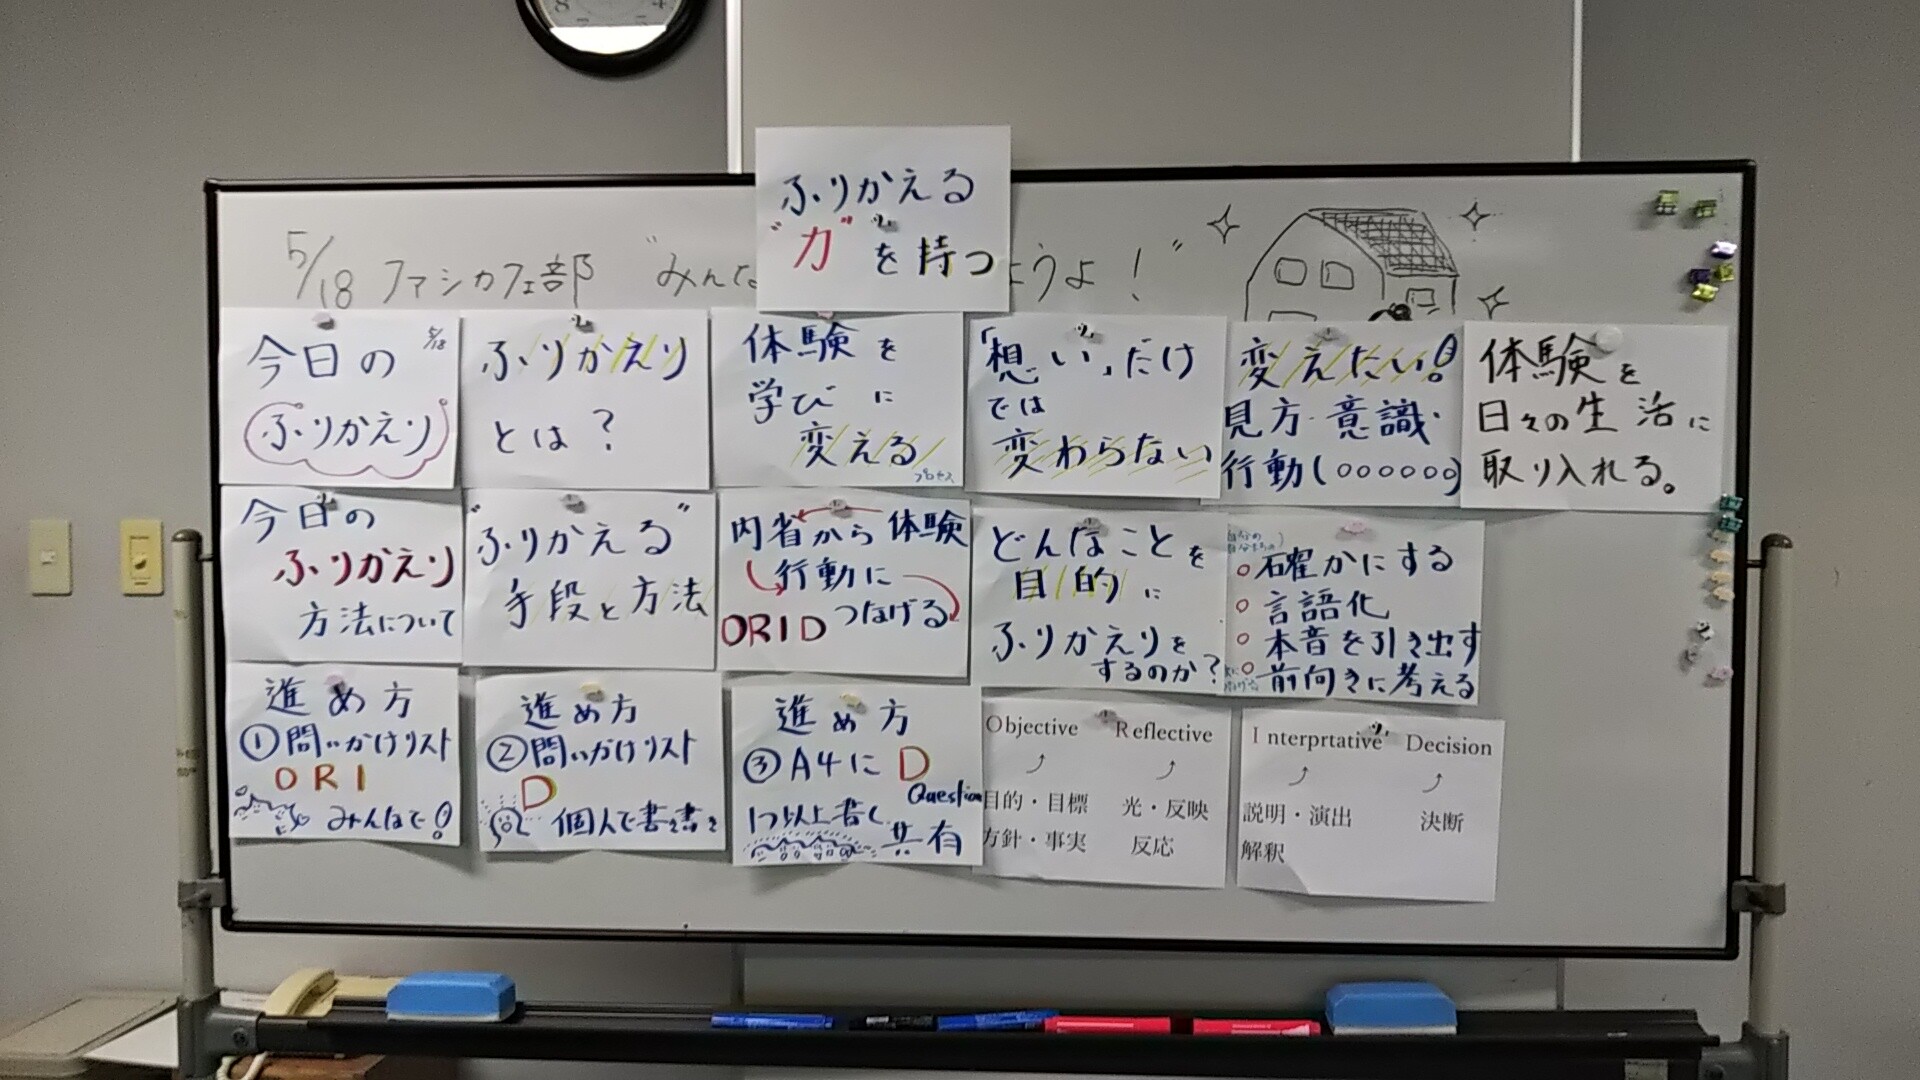 ふりかえる
"力"を持つ
5/18 ファシカフェ部 "みんな
ようよ！"
今日の 5/18
ふりかえり
ふりかえり
とは？
体験を
学びに
変える
プロセス
「想い」だけ
では
変わらない
変えたい！
見方・意識・
行動(○○○○○○)
体験を
日々の生活に
取り入れる。
今日の
ふりかえり
方法について
"ふりかえる"
手段と方法
内省から体験
行動に
ORID つなげる
どんなことを
目的に
ふりかえりを
するのか？
○確かにする
○言語化
○本音を引き出す
○前向きに考える
進め方
①問いかけリスト
ORI
みんなで！
進め方
②問いかけリスト
D
個人で書き書き
進め方
③A4に D
Question
1つ以上書く
共有
Objective Reflective
目的・目標 光・反映
方針・事実 反応
Interprtative Decision
説明・演出 決断
解釈